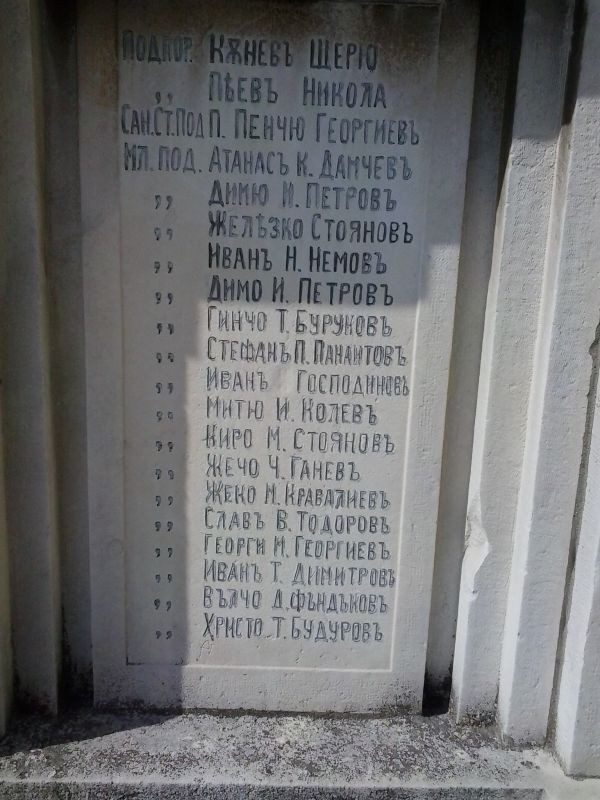 Подпор. Кѫневъ Щерю
,, Пѣевъ Никола
Сан.Ст.Под П. Пенчю Георгиевъ
Мл. под. Атанасъ К. Дамчевъ
,, Димю И. Петровъ
,, Желѣзко Стояновъ
,, Иванъ Н. Немовъ
,, Димо И. Петровъ
,, Гинчо Т. Буруковъ
,, Стефанъ П. Панаитовъ
,, Иванъ Господиновъ
,, Митю И. Колевъ
,, Киро М. Стояновъ
,, Жечо Ч. Ганевъ
,, Жеко М. Кравалиевъ
,, Славъ В. Тодоровъ
,, Георги М. Георгиевъ
,, Иванъ Т. Димитровъ
,, Вълчо Д. Фъндъковъ
,, Христо Т. Будуровъ